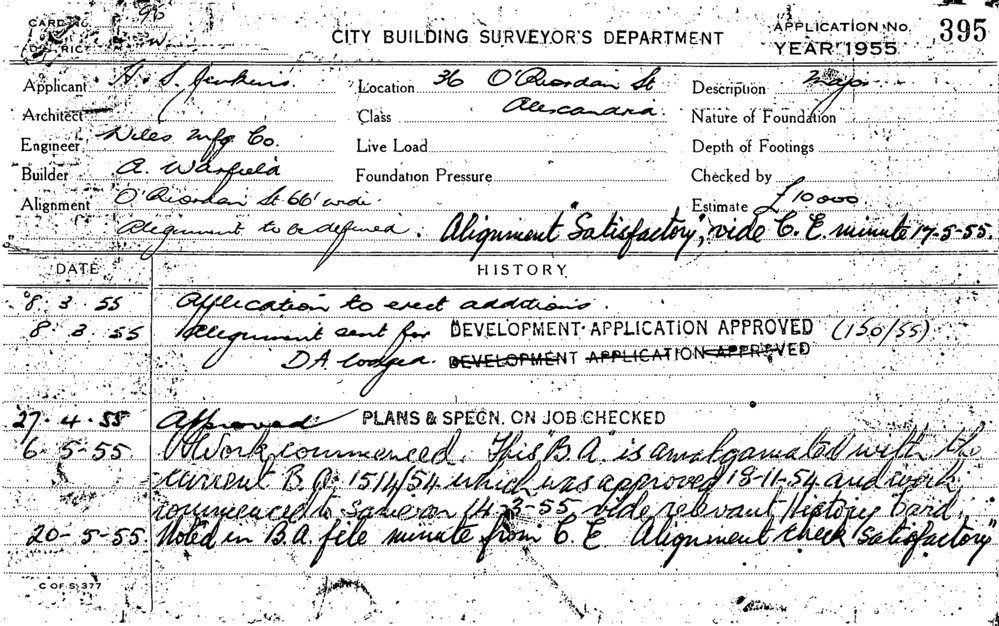 CARD No. 96
DISTRICT W.
CITY BUILDING SURVEYOR'S DEPARTMENT
APPLICATION No. 395
YEAR 1955
Applicant H. S. Jenkins.
Location 36 O'Riordan St
Alexandria.
Description
Architect
Class
Nature of Foundation
Engineer Niles Mfg Co.
Live Load
Depth of Footings
Builder A. Warfield
Foundation Pressure
Checked by
Alignment O'Riordan St 66' wide.
Estimate £10000
Alignment to be defined. Alignment "Satisfactory", vide C. E. minute 17-5-55.
DATE HISTORY
8. 3. 55 Application to erect additions.
8. 3. 55 Alignment sent for DEVELOPMENT APPLICATION APPROVED (150/55)
DA lodged. DEVELOPMENT APPLICATION APPROVED
27. 4. 55 Approved PLANS & SPECN. ON JOB CHECKED
6. 5-55 Work commenced. This "B.A." is amalgamated with the
current B.A. 1514/54 which was approved 18-11-54 and work
commenced to same on 14-3-55, vide relevant History Card.
20-5-55. Noted in B.A. file minute from C. E. Alignment check "Satisfactory"
C OF S 377